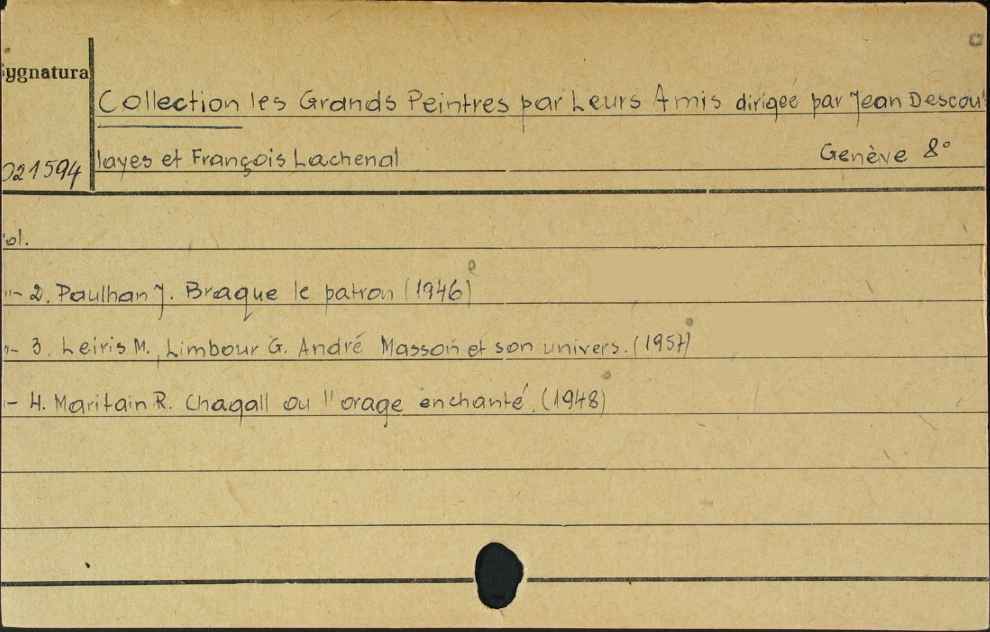 Sygnatura
Collection les Grands Peintres par Leurs Amis dirigée par Jean Descou-
021594 layes et François Lachenal Genève 8°
Vol.
"- 2. Paulhan J. Braque le patron (1946)
"- 3. Leiris M., Limbour G. André Masson et son univers. (1957)
"- 4. Maritain R. Chagall ou l'orage enchanté. (1948)